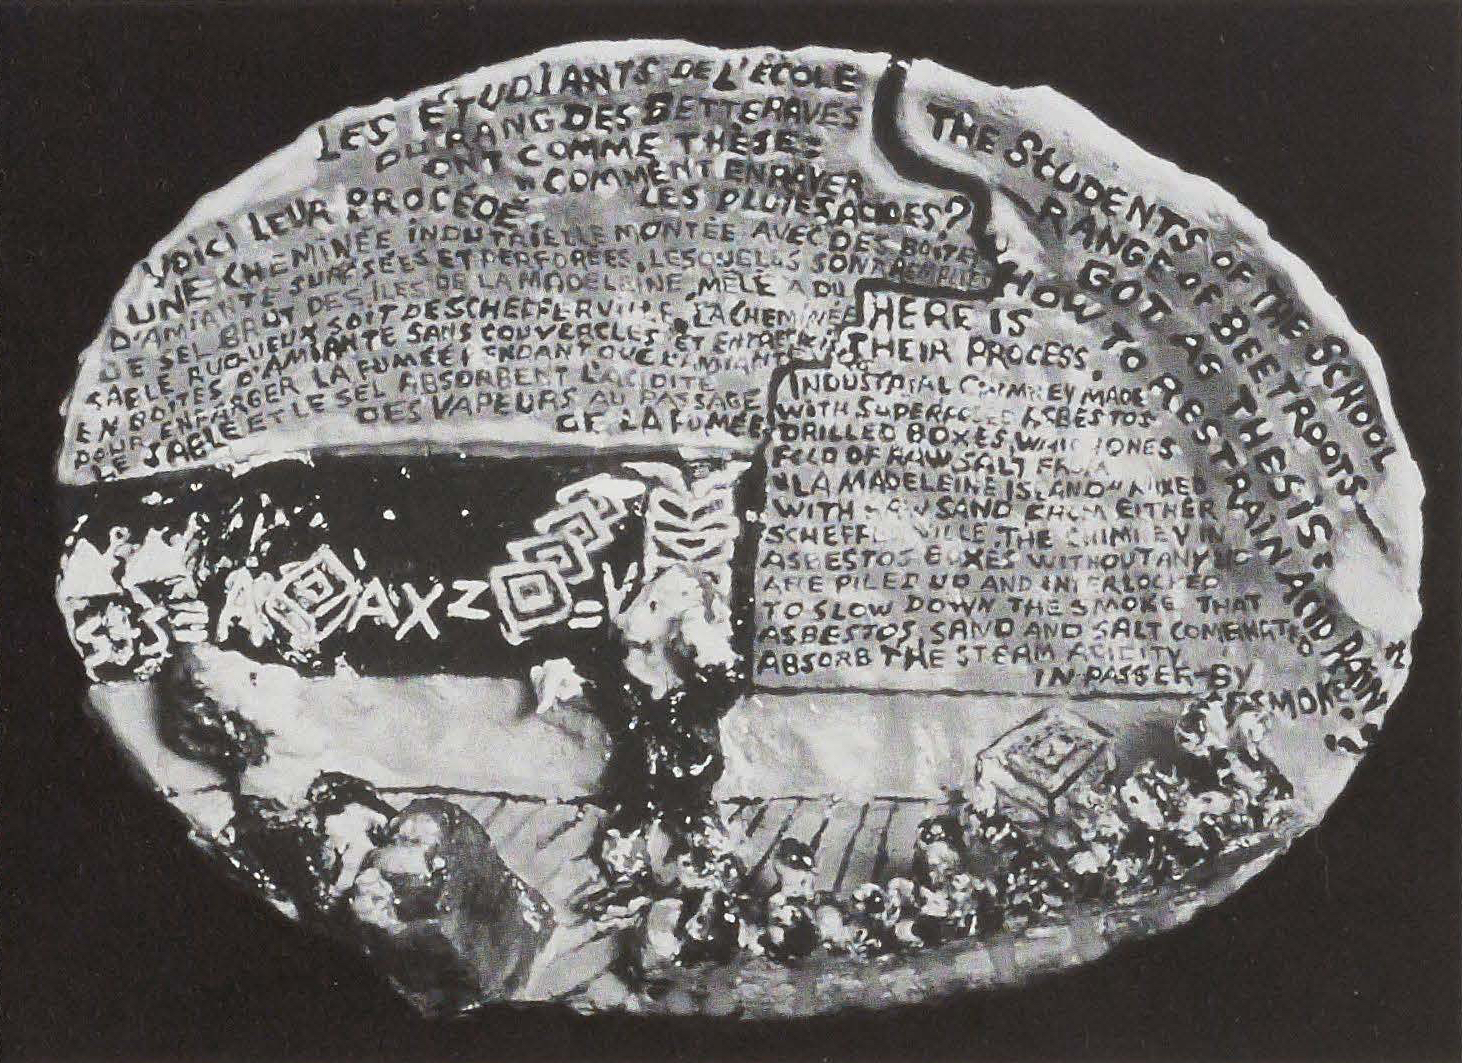 LES ÉTUDIANTS DE L'ÉCOLE
DU RANG DES BETTERAVES
ONT COMME THÈSE:
"COMMENT ENRAYER
LES PLUIES ACIDES?
VOICI LEUR PROCÉDÉ
UNE CHEMINÉE INDUTRIELLE MONTÉE AVEC DES BOITES
D'AMIANTE ET PERFORÉES, LESQUELLES SONT REMPLIES
DE SEL BRUT DES ÎLES DE LA MADELEINE, MÊLÉ A DU
SABLE RUGUEUX SOIT DE SCHEFFERVILLE, LA CHEMINÉE
EN BOITES D'AMIANTE SANS COUVERCLES ET
POUR LA FUMÉE PENDANT QUE L'AMIANTE
LE SABLE ET LE SEL ABSORBENT L'ACIDITÉ
DES VAPEURS AU PASSAGE
LA FUMÉE
THE STUDENTS OF THE SCHOOL
RANGE OF BEETROOTS
GOT AS THESIS:
HOW TO RESTRAIN ACID RAIN
HERE IS
THEIR PROCESS.
INDUSTRIAL CHIMNEY MADE
WITH ASBESTOS
DRILLED BOXES,
OF RAW SALT
"LA MADELEINE ISLAND" MIXED
WITH SAND FROM EITHER
SCHEFFERVILLE, THE CHIMNEY IN
ASBESTOS BOXES WITHOUT ANY
ARE PILED UP AND INTERLOCKED
TO SLOW DOWN THE SMOKE THAT
ASBESTOS, SAND AND SALT
ABSORB THE STEAM ACIDITY
IN PASSER-BY
OF SMOKE.